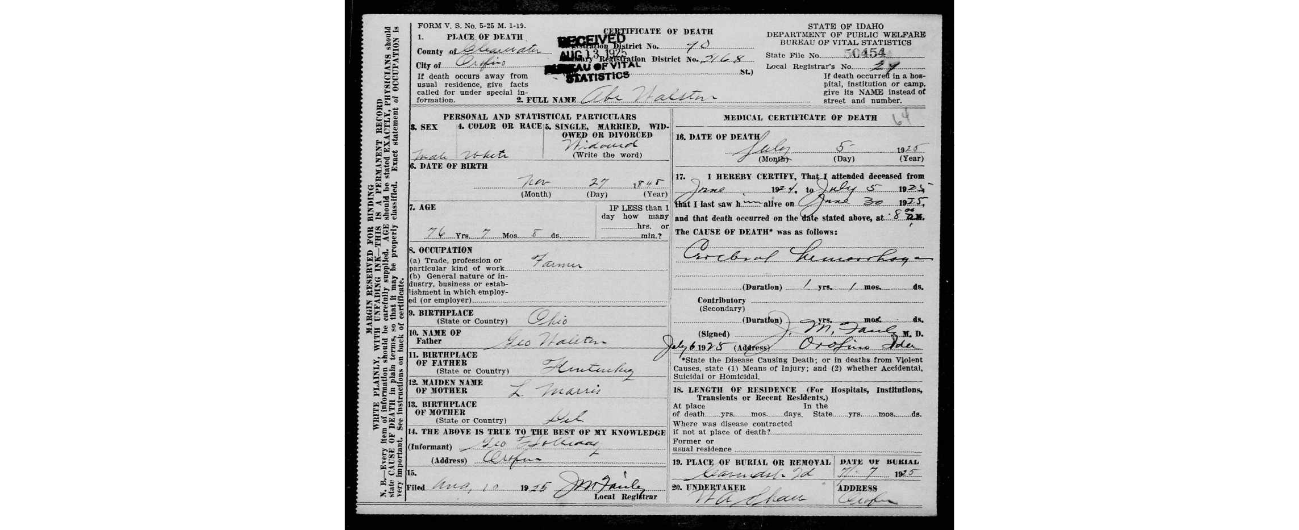 FORM V. S. No. 5-25 M. 1-19.
CERTIFICATE OF DEATH
STATE OF IDAHO
DEPARTMENT OF PUBLIC WELFARE
BUREAU OF VITAL STATISTICS
State File No. 50454
Local Registrar's No. 27
1. PLACE OF DEATH
County of Clearwater
City of Orofino
Registration District No. 90
Registration District No. 2168
St.)
RECEIVED
AUG 13 1925
BUREAU OF VITAL
STATISTICS
If death occurs away from
usual residence, give facts
called for under special in-
formation.
If death occurred in a hos-
pital, institution or camp,
give its NAME instead of
street and number.
2. FULL NAME Abe Walston
64
PERSONAL AND STATISTICAL PARTICULARS
3. SEX
Male
4. COLOR OR RACE
White
5. SINGLE, MARRIED, WID-
OWED OR DIVORCED
Widowed
(Write the word)
6. DATE OF BIRTH
Nov 27 1848
(Month) (Day) (Year)
7. AGE
76 Yrs. 7 Mos. 8 ds.
IF LESS than 1
day how many
hrs. or
min.?
8. OCCUPATION
(a) Trade, profession or
particular kind of work Farmer
(b) General nature of in-
dustry, business or estab-
lishment in which employ-
ed (or employer)
9. BIRTHPLACE
(State or Country) Ohio
10. NAME OF
Father Geo Walston
11. BIRTHPLACE
OF FATHER
(State or Country)
12. MAIDEN NAME
OF MOTHER L Marris
13. BIRTHPLACE
OF MOTHER
(State or Country)
14. THE ABOVE IS TRUE TO THE BEST OF MY KNOWLEDGE
(Informant) Geo
(Address) Orofino
15.
Filed Aug. 10 1925 J M Fairly
Local Registrar
MEDICAL CERTIFICATE OF DEATH
16. DATE OF DEATH
July 5 1925
(Month) (Day) (Year)
17. I HEREBY CERTIFY, That I attended deceased from
June 1924, to July 5 1925
that I last saw him alive on June 30 1925
and that death occurred on the date stated above, at 8 M.
The CAUSE OF DEATH* was as follows:
Cerebral hemorrhage
(Duration) 1 yrs. 1 mos. ds.
Contributory
(Secondary)
(Duration) yrs. mos. ds.
(Signed) J. M. Fairly M. D.
July 6 1925 (Address) Orofino Ida
*State the Disease Causing Death; or in deaths from Violent
Causes, state (1) Means of Injury; and (2) whether Accidental,
Suicidal or Homicidal.
18. LENGTH OF RESIDENCE (For Hospitals, Institutions,
Transients or Recent Residents.)
At place In the
of death yrs. mos. days. State yrs. mos. ds.
Where was disease contracted
if not at place of death?
Former or
usual residence
19. PLACE OF BURIAL OR REMOVAL
Cavendish Id
DATE OF BURIAL
7-7 1925
20. UNDERTAKER
ADDRESS
Orofino
MARGIN RESERVED FOR BINDING
WRITE PLAINLY, WITH UNFADING INK—THIS IS A PERMANENT RECORD
N. B.—Every item of information should be carefully supplied. AGE should be stated EXACTLY, PHYSICIANS should
state CAUSE OF DEATH in plain terms, so that it may be properly classified. Exact statement of OCCUPATION is
very important. See instructions on back of certificate.